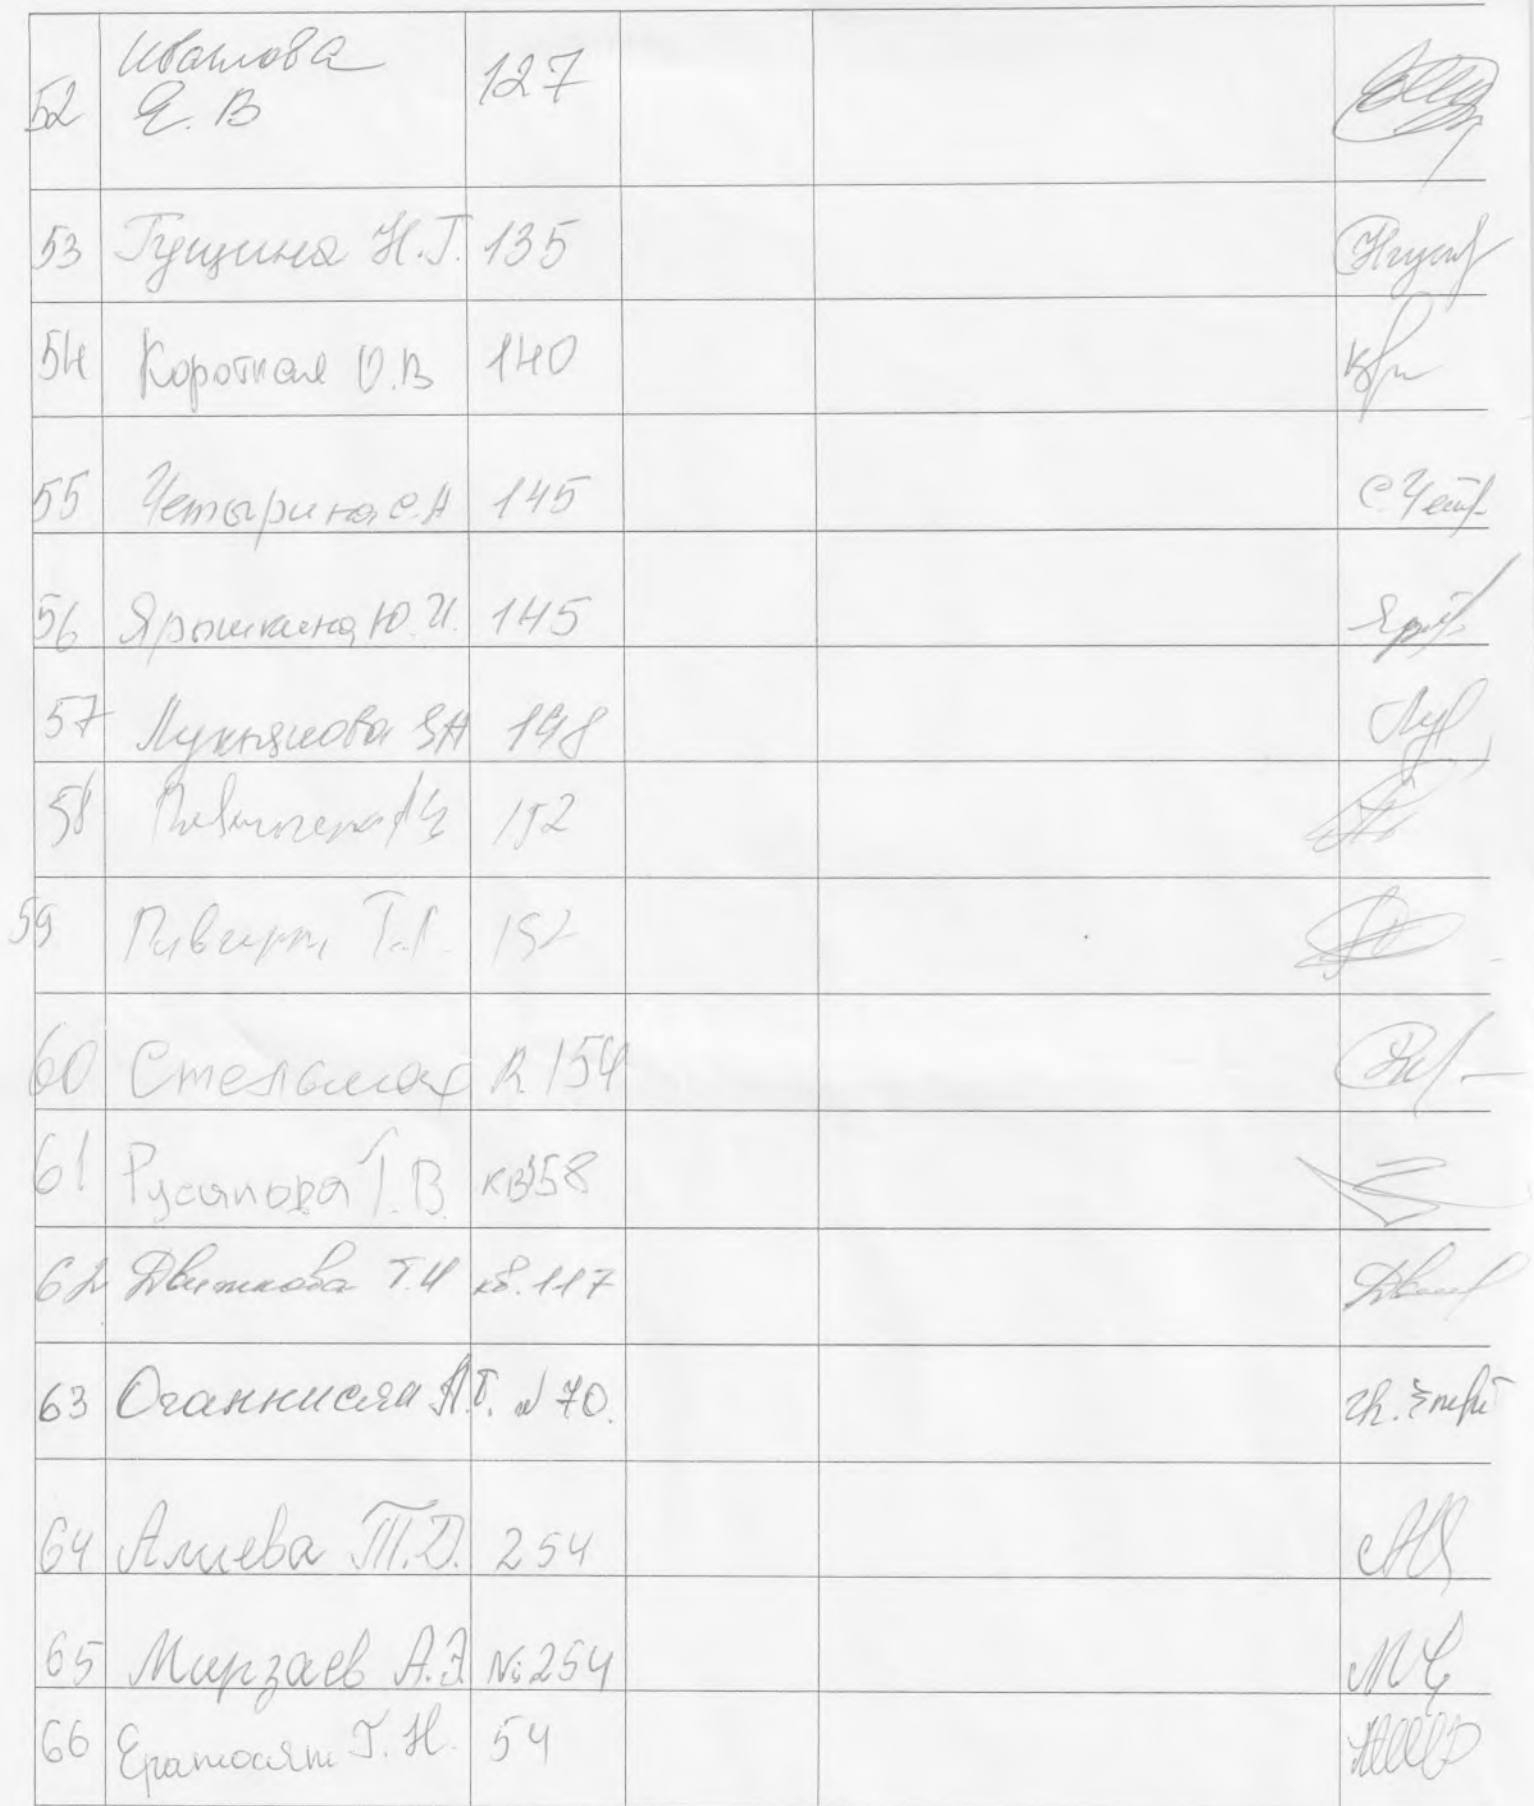 Ивашова
52 Е. В 127
53 Гущина Н.Г. 135
54 Короткая О.В 140
55 Четырина С.А 145 С.Чет
56 Ярошкина Ю.И. 145
57 Лукьянова 198
58 152
59 Т.Г. 152
60 Стельмах 154
61 Русанова Т.В. кв158
62 Движкова Т.И кв.117
63 Оганнисян А.Г. 70.
64 Алиева Т.Д. 254
65 Мирзаев А.Э №254
66 Г.Н. 54